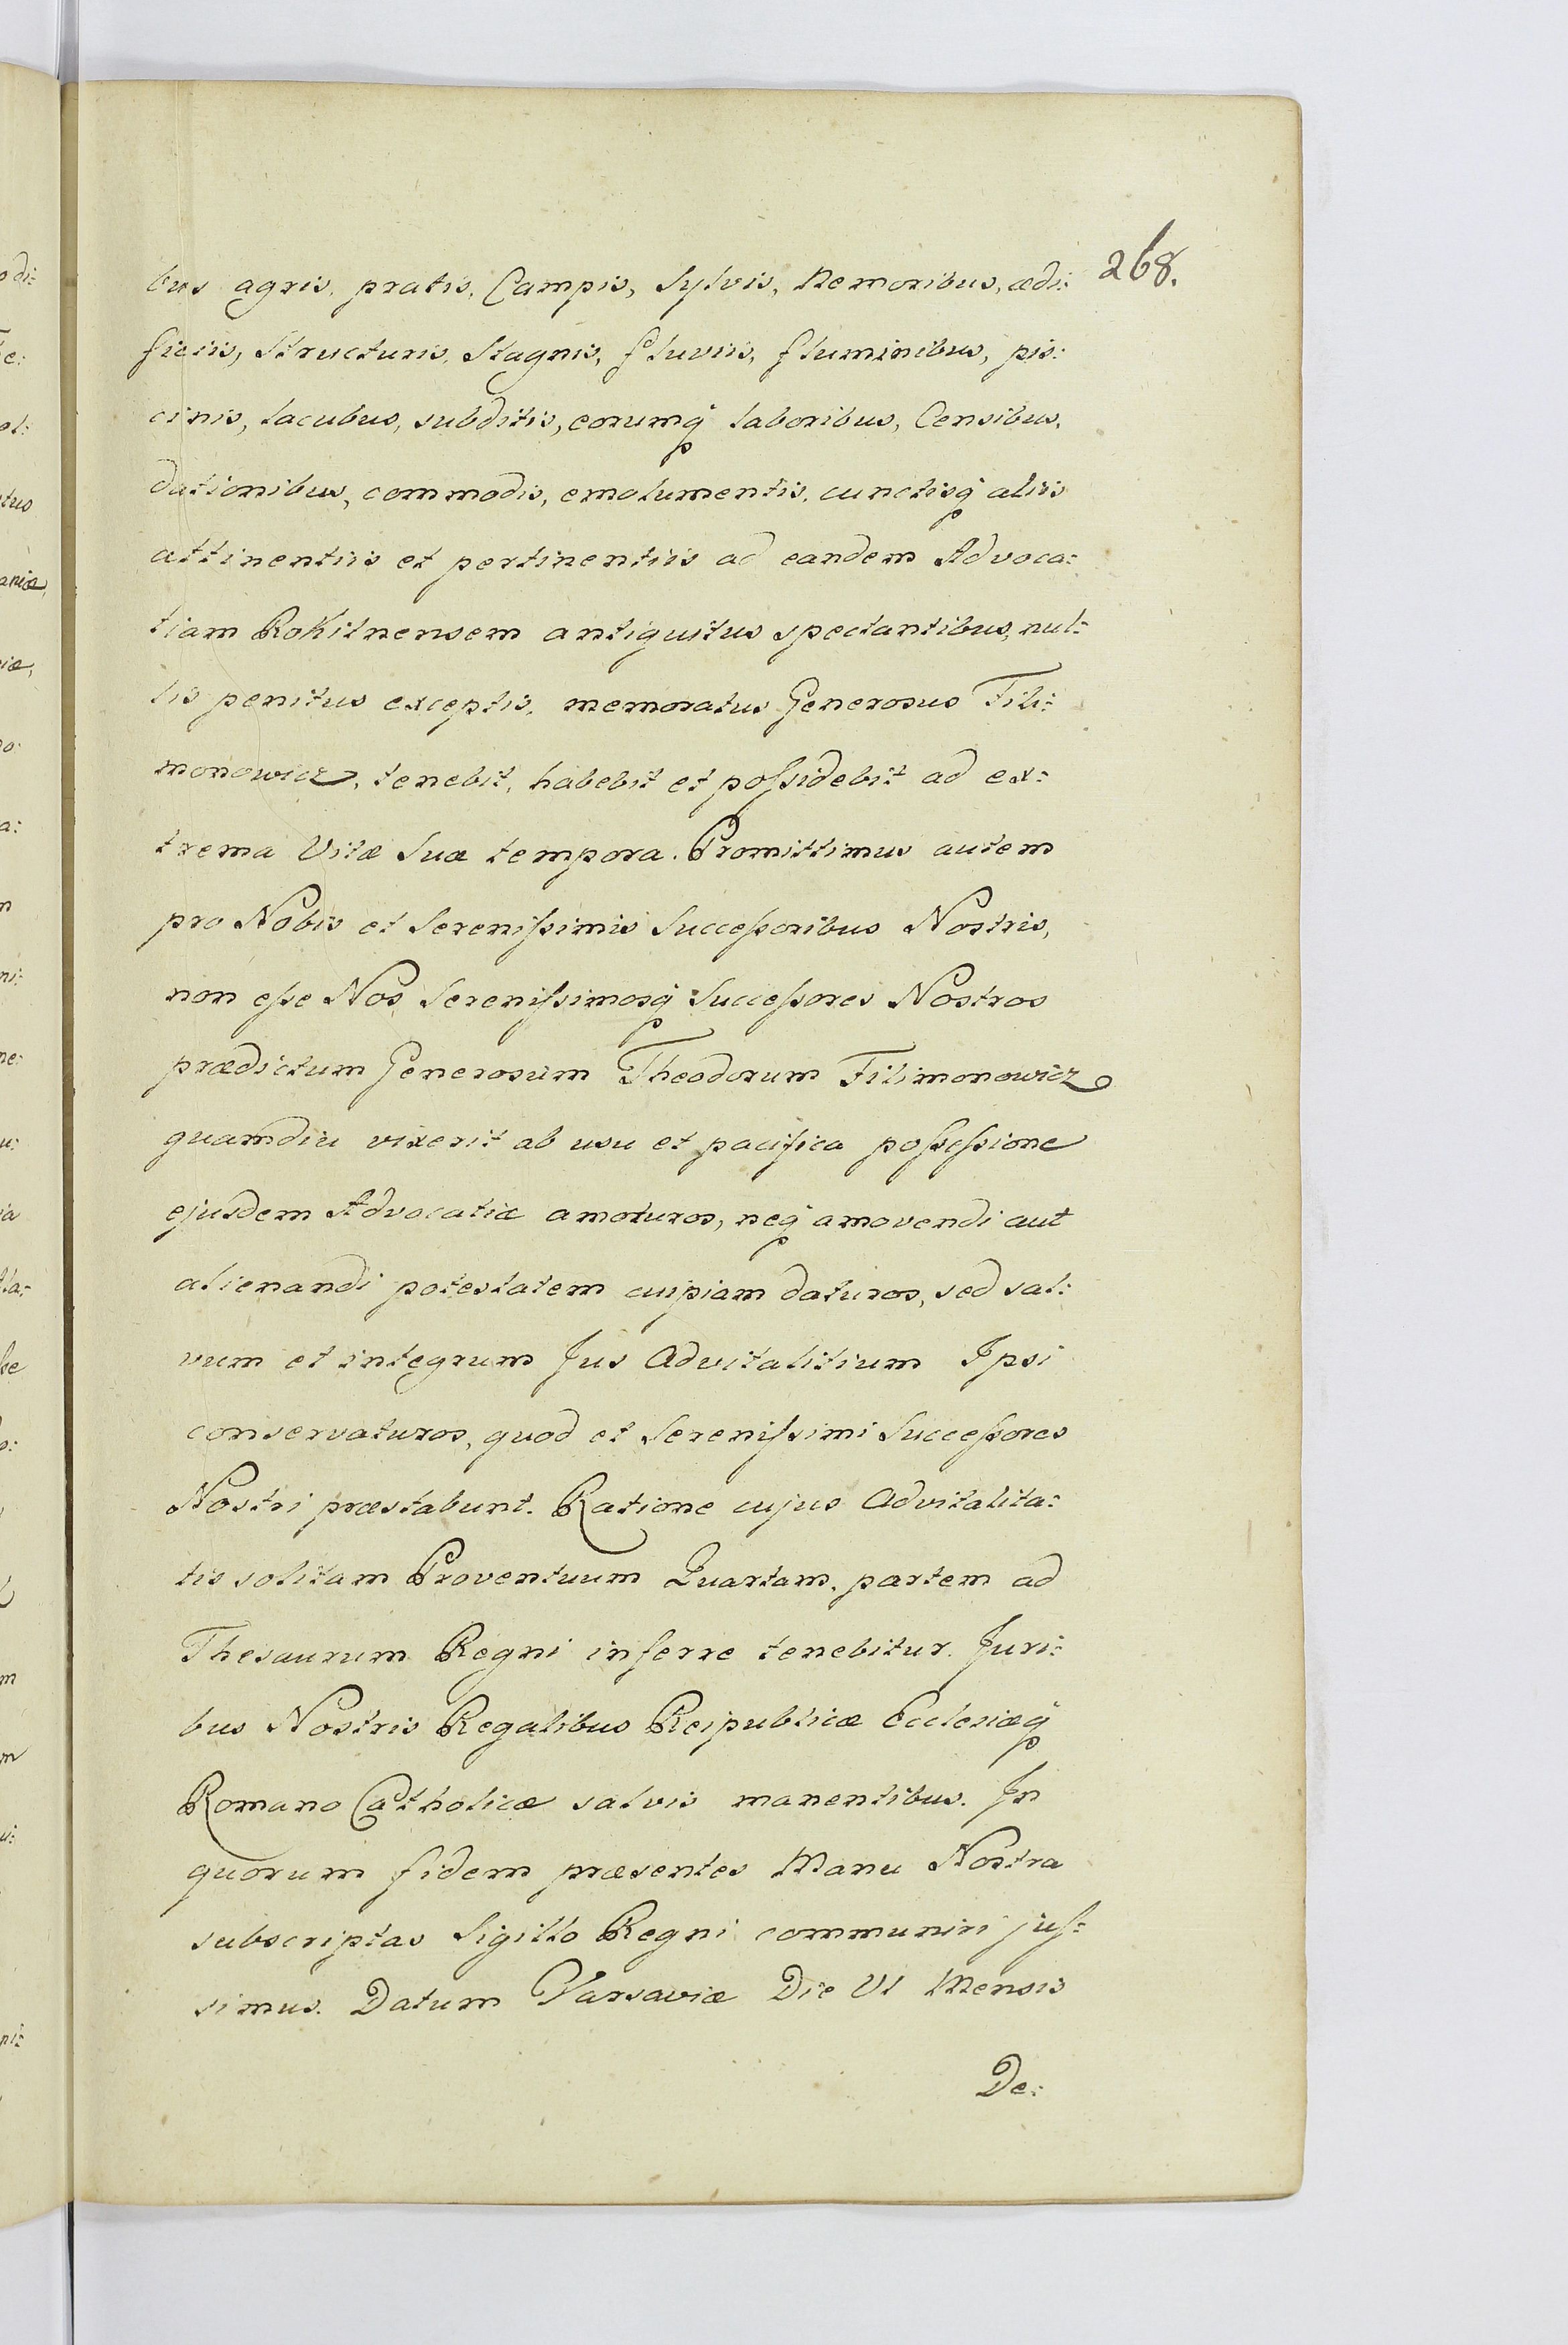 268.
bus agris, pratis, Campis, Sylvis, Nemoribus, ædi:
ficiis, Structuris, Stagnis, fluviis, fluminibus, pis:
cinis, lacubus, subditis, eorumq̃ laboribus, Censibus,
dationibus, commodis, emolumentis, cunctisq̃ aliis
attinentiis et pertinentiis ad eandem Advoca:
tiam Rokitnensem antiquitus spectantibus, nul:
lis penitus exceptis, memoratus Generosus Fili:
monowicz, tenebit, habebit et poſsidebit ad ex:
trema Vitæ Suæ tempora. Promittimus autem
pro Nobis et Sereniſsimis Succeſsoribus Nostris,
non eſse Nos Sereniſsimosq̃ Succeſsores Nostros
prædictum Generosum Theodorum Filimonowicz
quamdiu vixerit ab usu et pacifica poſseſsione
ejusdem Advocatiæ amoturos, neq̃ amovendi aut
alienandi potestatem cuipiam daturos, sed sal:
vum et integrum Jus Advitalitium Ipsi
conservaturos, quod et Sereniſsimi Succeſsores
Nostri præstabunt. Ratione cujus Advitalita:
tis solitam Proventuum Quartam partem ad
Thesaurum Regni inferre tenebitur. Juri:
bus Nostris Regalibus Reipublicæ Ecclesiæq̃
Romano Catholicæ salvis manentibus. In
quorum fidem præsentes Manu Nostra
subscriptas Sigillo Regni communiri juſ:
simus. Datum Varsaviæ Die VI Mensis
De: